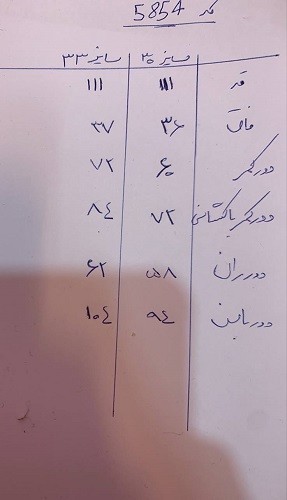 کد 5854
سایز ۳۰ سایز ۳۳
قد ااا ااا
فاق ۳۶ ۳۷
دور کمر ۶۰ ۷۲
دور کمر با کشسانی ۷۲ ۸۴
دور ران ۵۸ ۶۲
دور باسن ۹۴ ۱۰۴